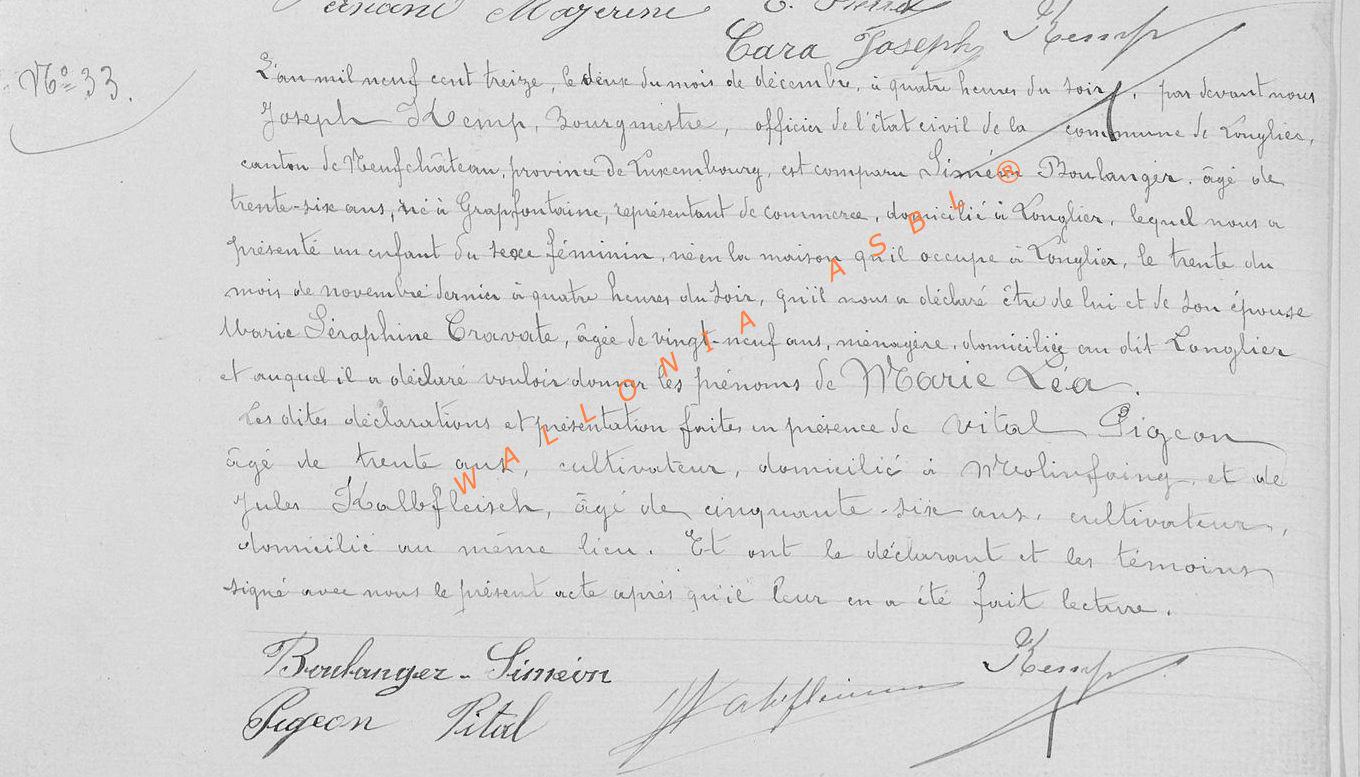 Mazerine
Cara Joseph Kemp
N° 33.
L'an mil neuf cent treize, le deux du mois de décembre, à quatre heures du soir, par devant nous
Joseph Kemp, Bourgmestre, officier de l'état civil de la commune de Longlier,
canton de Neufchâteau, province de Luxembourg, est comparu Siméon Boulanger, âgé de
trente-six ans, né à Grapfontaine, représentant de commerce, domicilié à Longlier, lequel nous a
présenté un enfant du sexe féminin, né en la maison qu'il occupe à Longlier, le trente du
mois de novembre dernier à quatre heures du soir, qu'il nous a déclaré être de lui et de son épouse
Marie Séraphine Cravate, âgée de vingt-neuf ans, ménagère, domiciliée au dit Longlier
et auquel il a déclaré vouloir donner les prénoms de Marie Léa.
Les dites déclarations et présentation faites en présence de Vital Pigeon
âgé de trente ans, cultivateur, domicilié à Molinfaing et de
Jules Kalbfleisch, âgé de cinquante-six ans, cultivateur,
domicilié au même lieu. Et ont le déclarant et les témoins
signé avec nous le présent acte après qu'il leur en a été fait lecture.
Boulanger-Siméon Kemp
Pigeon Vital
WALLONIA ASBL ®